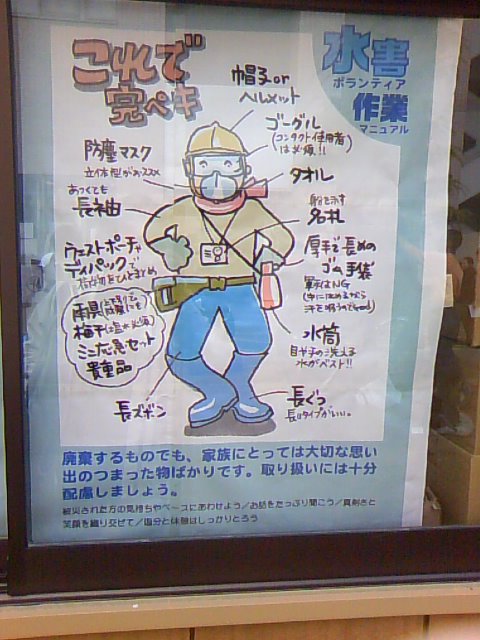 これで
完ペキ
水害
ボランティア
作業
マニュアル
帽子or
ヘルメット
ゴーグル
(コンタクト使用者
は必須!!)
防塵マスク
立体型がおススメ
タオル
あつくても
長袖
名札
ウェストポーチや
デイパックで
荷物をひとまとめ
厚手で長めの
ゴム手袋
軍手はNG
雨具
梅干し
ミニ応急セット
貴重品
水筒
目や手の洗える
水がベスト!!
長ズボン
長ぐつ
長いタイプがいい。
廃棄するものでも、家族にとっては大切な思い
出のつまった物ばかりです。取り扱いには十分
配慮しましょう。
被災された方の気持ちやペースにあわせよう/お話をたっぷり聞こう/真剣さと
笑顔を織り交ぜて/塩分と休憩はしっかりとろう